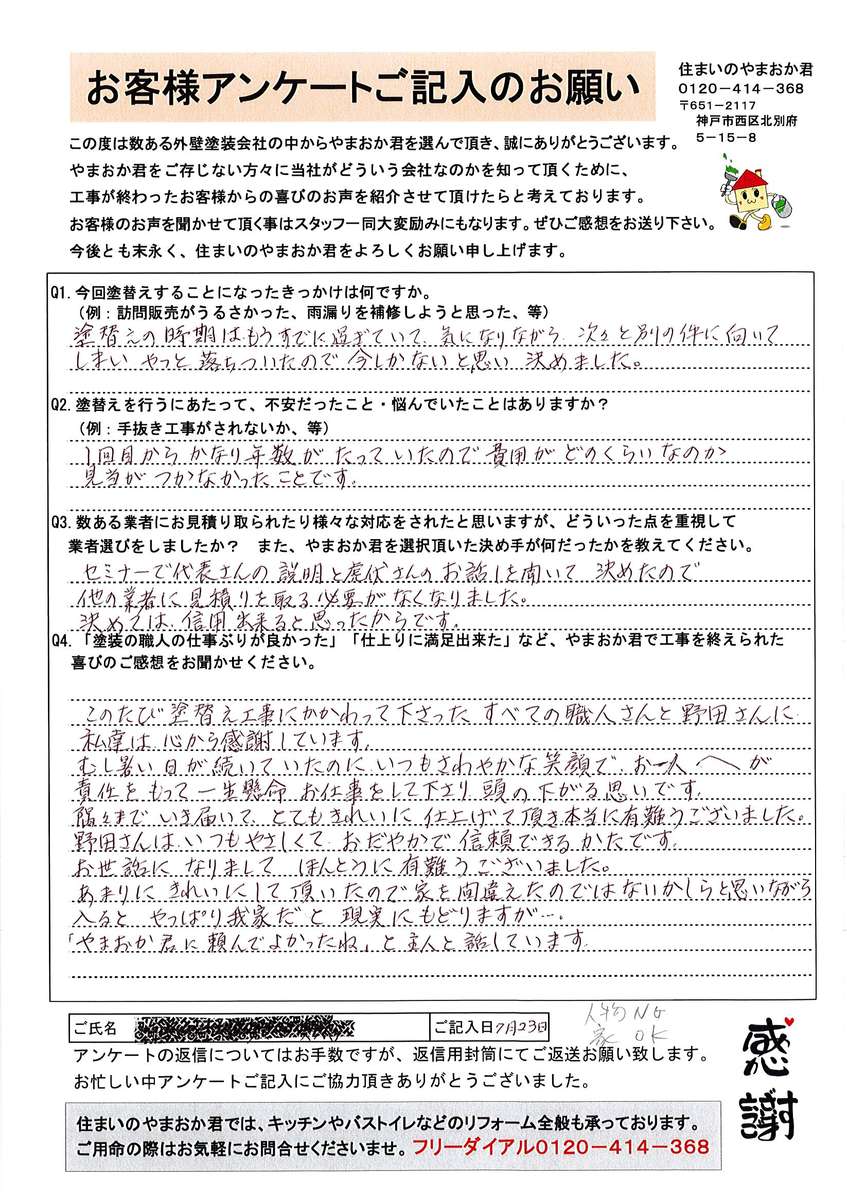 お客様アンケートご記入のお願い
住まいのやまおか君
0120－414－368
〒651－2117
神戸市西区北別府
5－15－8
この度は数ある外壁塗装会社の中からやまおか君を選んで頂き、誠にありがとうございます。
やまおか君をご存じない方々に当社がどういう会社なのかを知って頂くために、
工事が終わったお客様からの喜びのお声を紹介させて頂けたらと考えております。
お客様のお声を聞かせて頂く事はスタッフ一同大変励みにもなります。ぜひご感想をお送り下さい。
今後とも末永く、住まいのやまおか君をよろしくお願い申し上げます。
Q1.今回塗替えすることになったきっかけは何ですか。
（例：訪問販売がうるさかった、雨漏りを補修しようと思った、等）
塗替えの時期はもうすでに過ぎていて 気になりながら 次々と別の件に向いて
しまい やっと落ちついたので今しかないと思い 決めました。
Q2.塗替えを行うにあたって、不安だったこと・悩んでいたことはありますか？
（例：手抜き工事がされないか、等）
1回目から かなり年数が たって いたので 費用が どのくらいなのか
見当が つかなかったことです。
Q3.数ある業者にお見積り取られたり様々な対応をされたと思いますが、どういった点を重視して
業者選びをしましたか？ また、やまおか君を選択頂いた決め手が何だったかを教えてください。
セミナーで代表さんの説明と虎伏さんの お話しを聞いて 決めたので
他の業者に見積りを取る必要がなくなりました。
決めては 信用出来ると思ったからです。
Q4.「塗装の職人の仕事ぶりが良かった」「仕上りに満足出来た」など、やまおか君で工事を終えられた
喜びのご感想をお聞かせください。
このたび塗替え工事にかかわって下さった すべての職人さんと野田さんに
私達は 心から感謝しています。
むし暑い日が続いていたのに いつもさわやかな笑顔で お一人 〱が
責任をもって一生懸命 お仕事をして下さり 頭の下がる思いです。
隅々まで いき届いて とてもきれいに 仕上げて頂き本当に有難うございました。
野田さんは いつもやさしくて おだやかで 信頼できるかたです。
お世話になりまして ほんとうに有難うございました。
あまりに きれいにして頂いたので家を間違えたのではないかしらと思いながら
入ると やっぱり我家だと 現実にもどりますが….
「やまおか君に頼んでよかったね」と主人と話しています.
ご氏名
ご記入日7月23日
人物NG
家 OK
アンケートの返信についてはお手数ですが、返信用封筒にてご返送お願い致します。
お忙しい中アンケートご記入にご協力頂きありがとうございました。
感謝
住まいのやまおか君では、キッチンやバストイレなどのリフォーム全般も承っております。
ご用命の際はお気軽にお問合せくださいませ。フリーダイアル0120－414－368